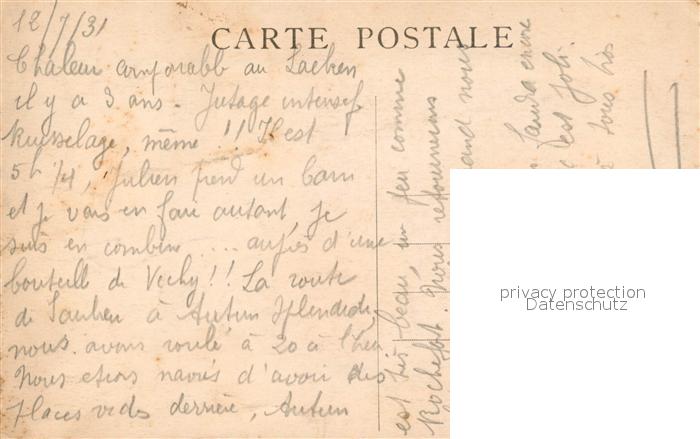 12/7/31
CARTE POSTALE
Chaleur comparable au
il y a 3 ans. Jutage intensif
Ruisselage, même !! Il est
5h 1/4, Julien prend un bain
et je vais en faire autant, je
suis en combine ... auprès d'une
bouteille de Vichy !! La route
de Saulieu à Autun splendide,
nous avons roulé à 20 à l'heure
Nous etions navrés d'avoir des
places vides derrière, Autun
est très beau, un peu comme
Rochefort. Nous retournerons
quand nous
encore
c'est joli.
à tous
privacy protection
Datenschutz